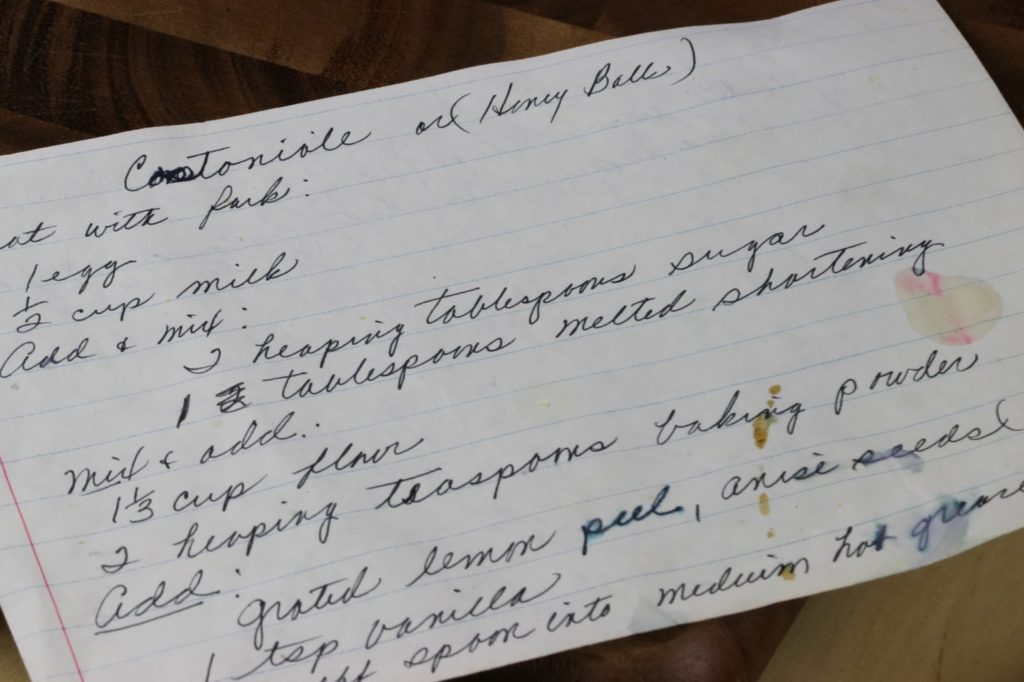 Castoniole or (Honey Balls)
at with fork:
1 egg
1/2 cup milk
Add & mix:
2 heaping tablespoons sugar
1 tablespoons melted shortening
Mix & add:
1 1/3 cup flour
2 heaping teaspoons baking powder
Add:
grated lemon peel, anise seeds (
1 tsp vanilla
spoon into medium hot grease